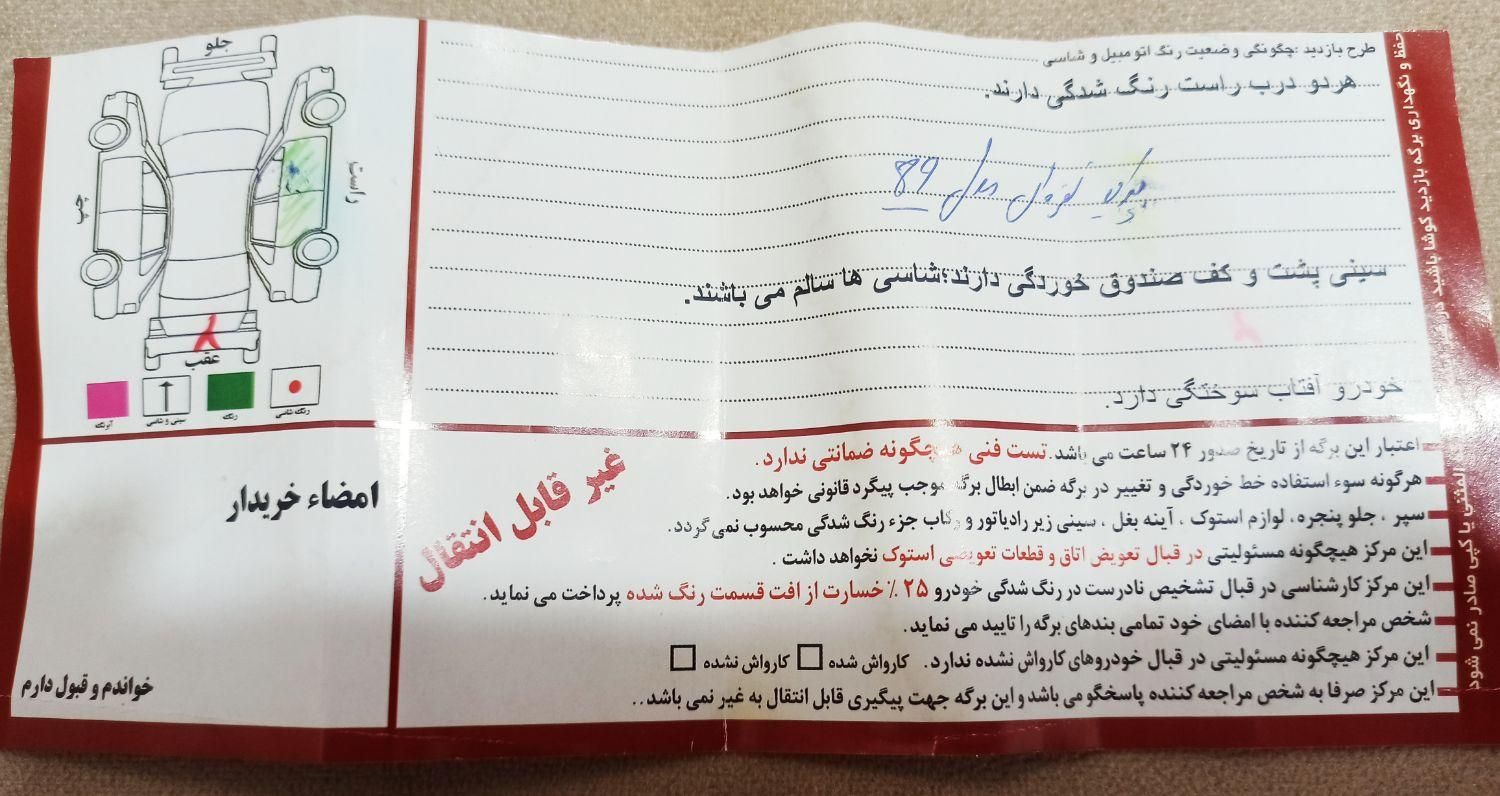 طرح بازدید :چگونگی وضعیت رنگ اتومبیل و شاسی
هردو درب راست رنگ شدگی دارند.
نقره‌ای مدل 89
سینی پشت و کف صندوق خوردگی دارند؛شاسی ها سالم می باشند.
خودرو آفتاب سوختگی دارد.
جلو
راست
چپ
عقب
رنگ شاسی
رنگ
سینی و شاسی
آبرنگ
اعتبار این برگه از تاریخ صدور ۲۴ ساعت می باشد.تست فنی هیچگونه ضمانتی ندارد.
هرگونه سوء استفاده خط خوردگی و تغییر در برگه ضمن ابطال برگه موجب پیگرد قانونی خواهد بود.
سپر ، جلو پنجره، لوازم استوک ، آینه بغل ، سینی زیر رادیاتور و رکاب جزء رنگ شدگی محسوب نمی گردد.
این مرکز هیچگونه مسئولیتی در قبال تعویض اتاق و قطعات تعویضی استوک نخواهد داشت .
این مرکز کارشناسی در قبال تشخیص نادرست در رنگ شدگی خودرو ۲۵٪ خسارت از افت قسمت رنگ شده پرداخت می نماید.
شخص مراجعه کننده با امضای خود تمامی بندهای برگه را تایید می نماید.
این مرکز هیچگونه مسئولیتی در قبال خودروهای کارواش نشده ندارد. کارواش شده کارواش نشده
این مرکز صرفا به شخص مراجعه کننده پاسخگو می باشد و این برگه جهت پیگیری قابل انتقال به غیر نمی باشد..
غیر قابل انتقال
امضاء خریدار
خواندم و قبول دارم
حفظ و نگهداری برگه بازدید کوشا باشید
المثنی یا کپی صادر نمی شود